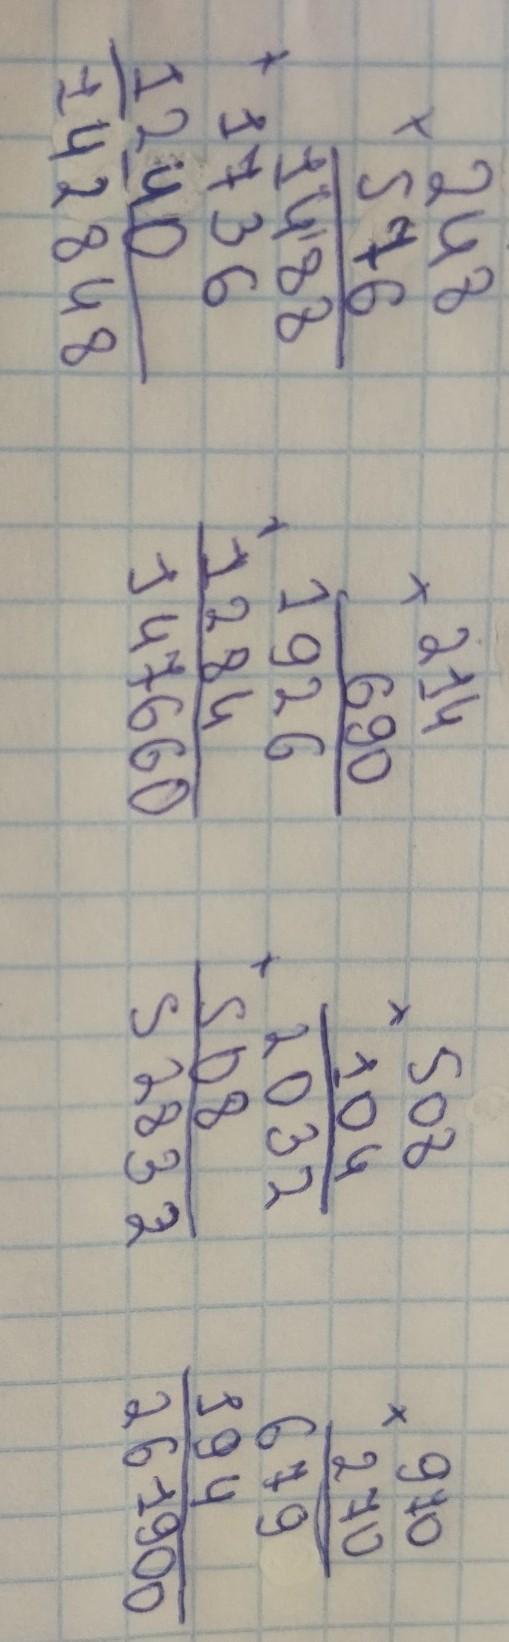 × 248
576
1488
+ 1736
1240
142848
× 214
690
1926
+ 1284
147660
× 508
104
2032
+ 508
52832
× 970
270
679
194
261900